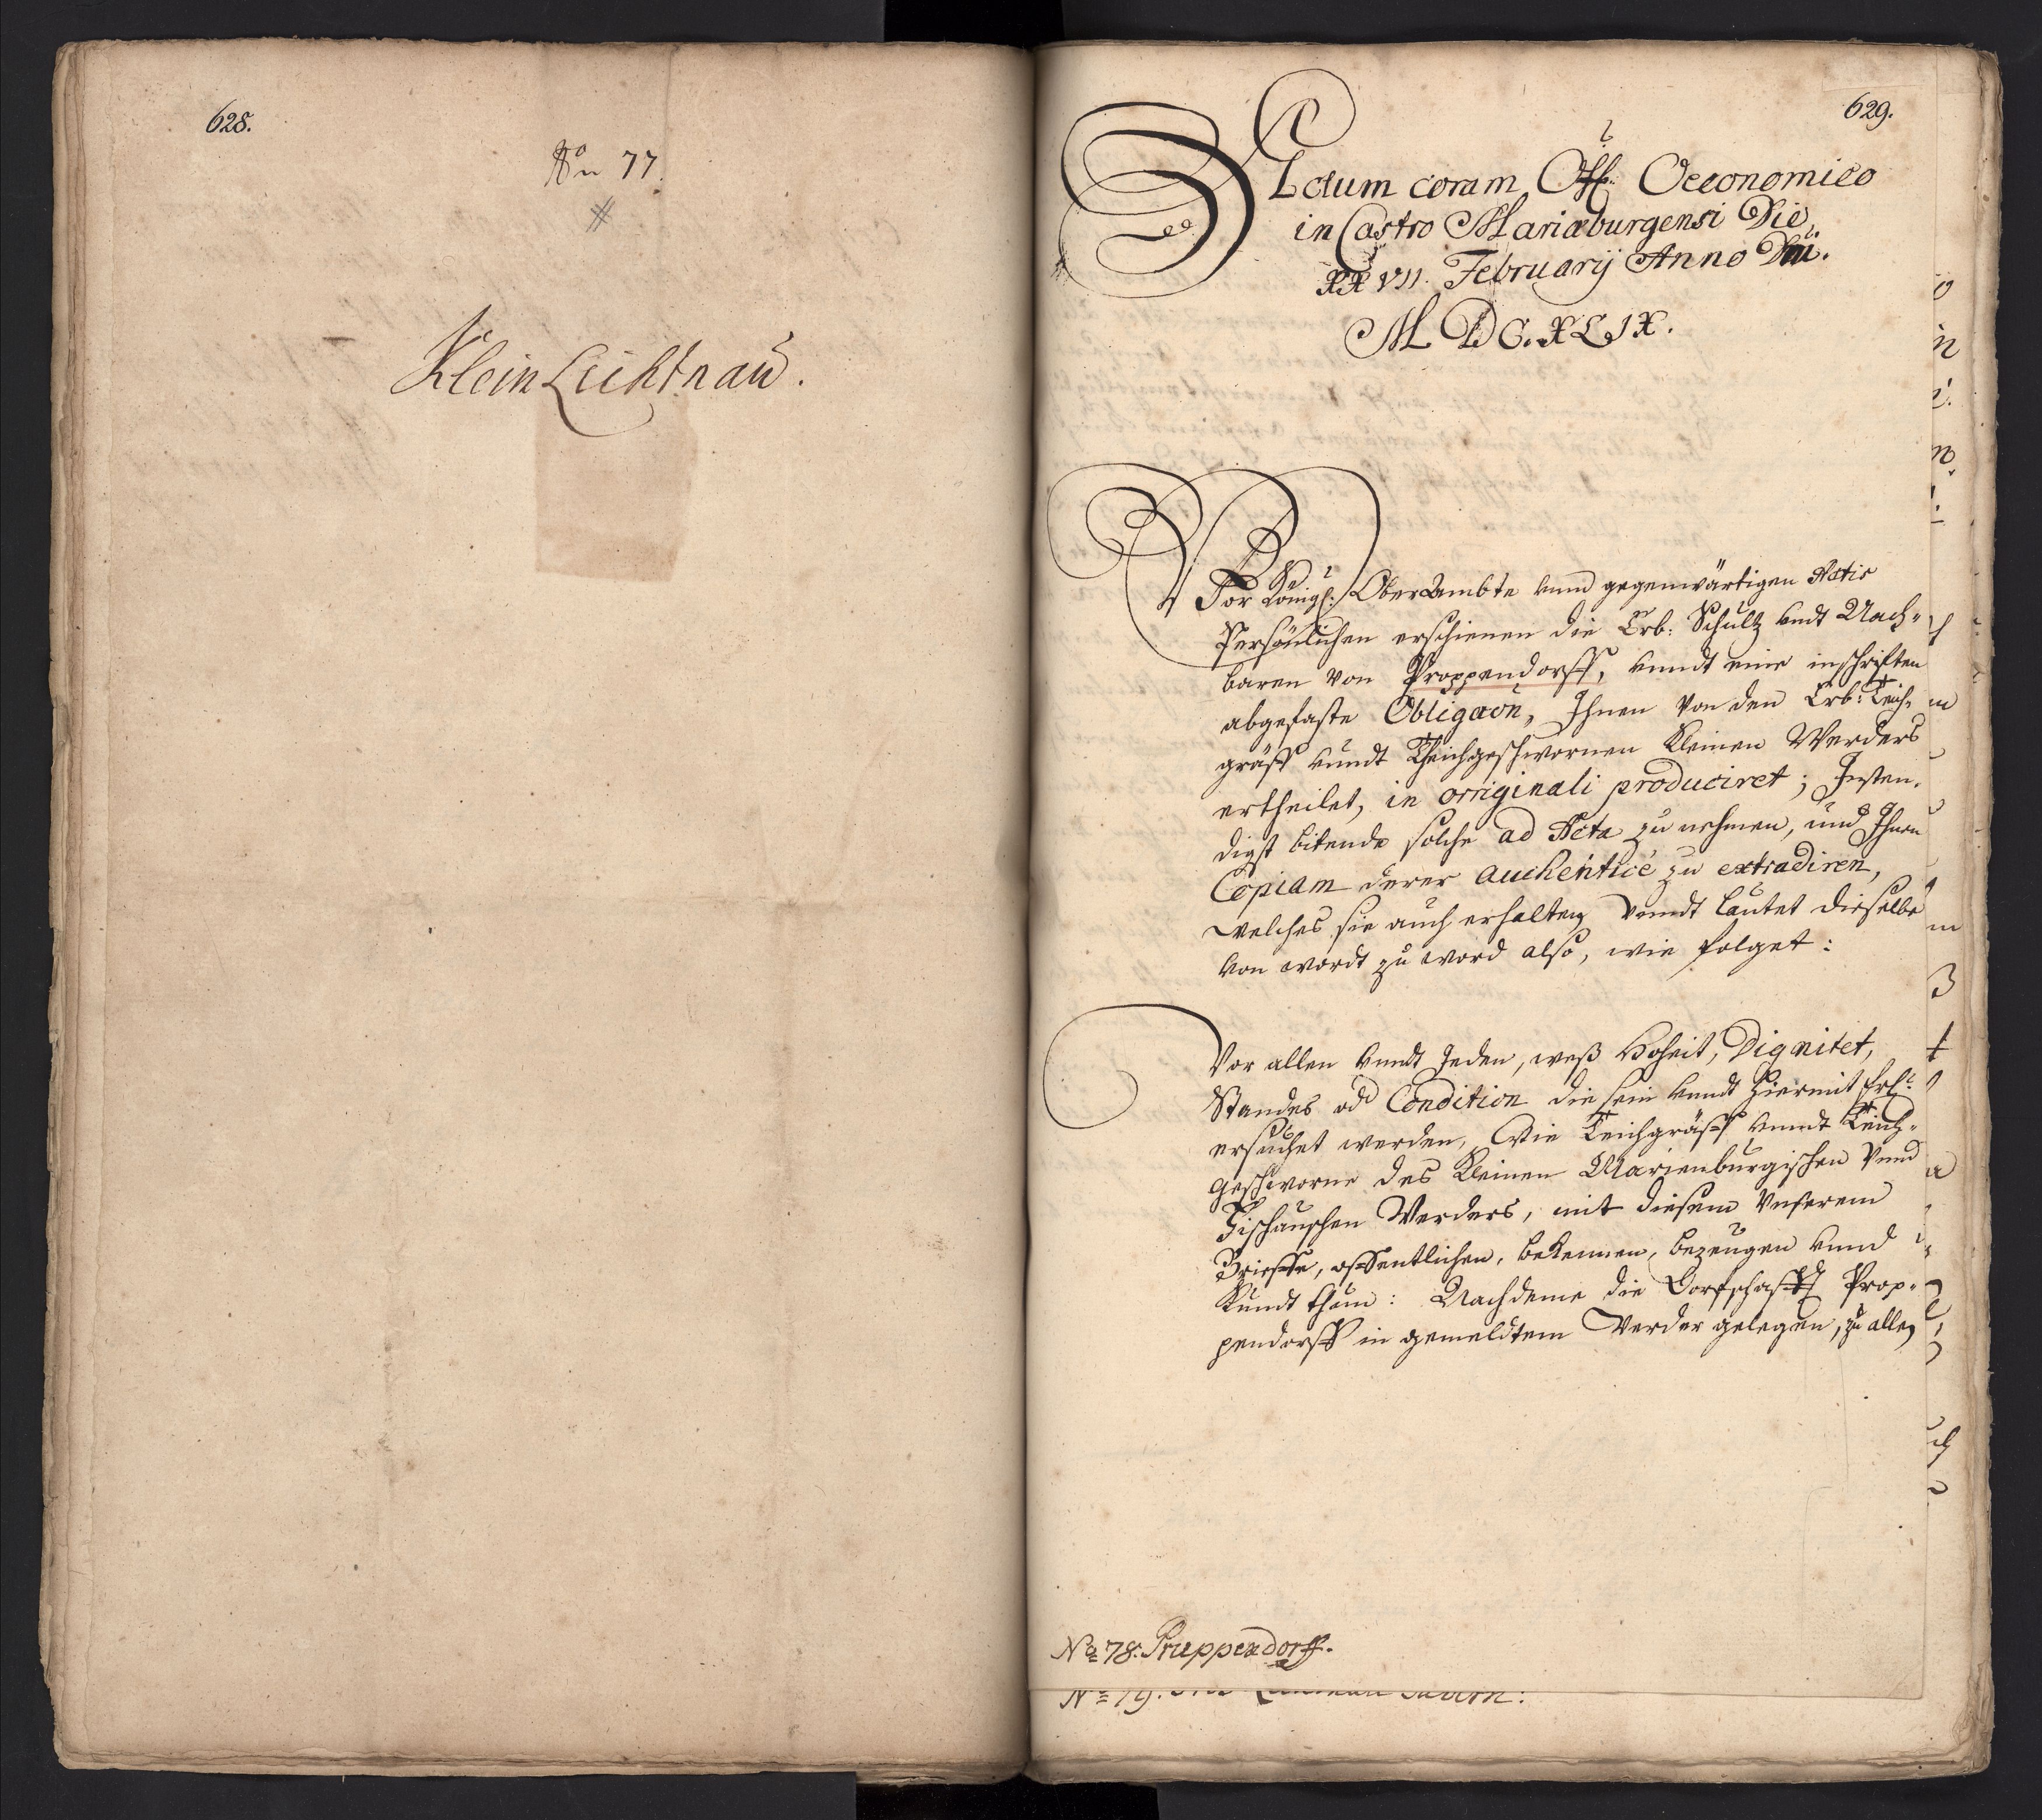 628.
No 77.
Klein Lichtnau.
629.
Actum coram Off: Oeconomico
in Castro Mariæburgensi Die
XXVII. February Anno Dni.
M DC. XLIX.
Vor Königl: OberAmbte vnnd gegenwärtigen Actis
Persönlichen erschienen die Erb: Schultz vndt Nach-
baren von Proppendorff, vnndt eine inschrifften
abgefaste Obligaon, Ihnen von den Erb: Teich-
gräff vnndt Theichgeschwornen Kleinen Werders
ertheilet, in originali produciret; Insten-
digst bitende solche ad Acta zu nehmen, und Ihnen
Copiam derer authenticé zu extradiren,
welches sie auch erhalten, vnndt lautet dieselbe
von wordt zu word also, wie folget:
Vor allen vnndt Jeden, weß Hoheit, Dignitet,
Standes od Condition die sein vnndt hiermit
ersuchet werden, Wie Teichgräff vnndt Teich-
geschworne des Kleinen Marienburgischen Vnnd
Fischauschen Werders, mit diesem Vnserem
Brieffe, offentlichen, bekennen, bezeugen vnnd
Kundt thun: Nachdeme die Dorfschafft Prop-
pendorff in gemeldtem Werder gelegen, zu allen
No 78. Pruppendorff.